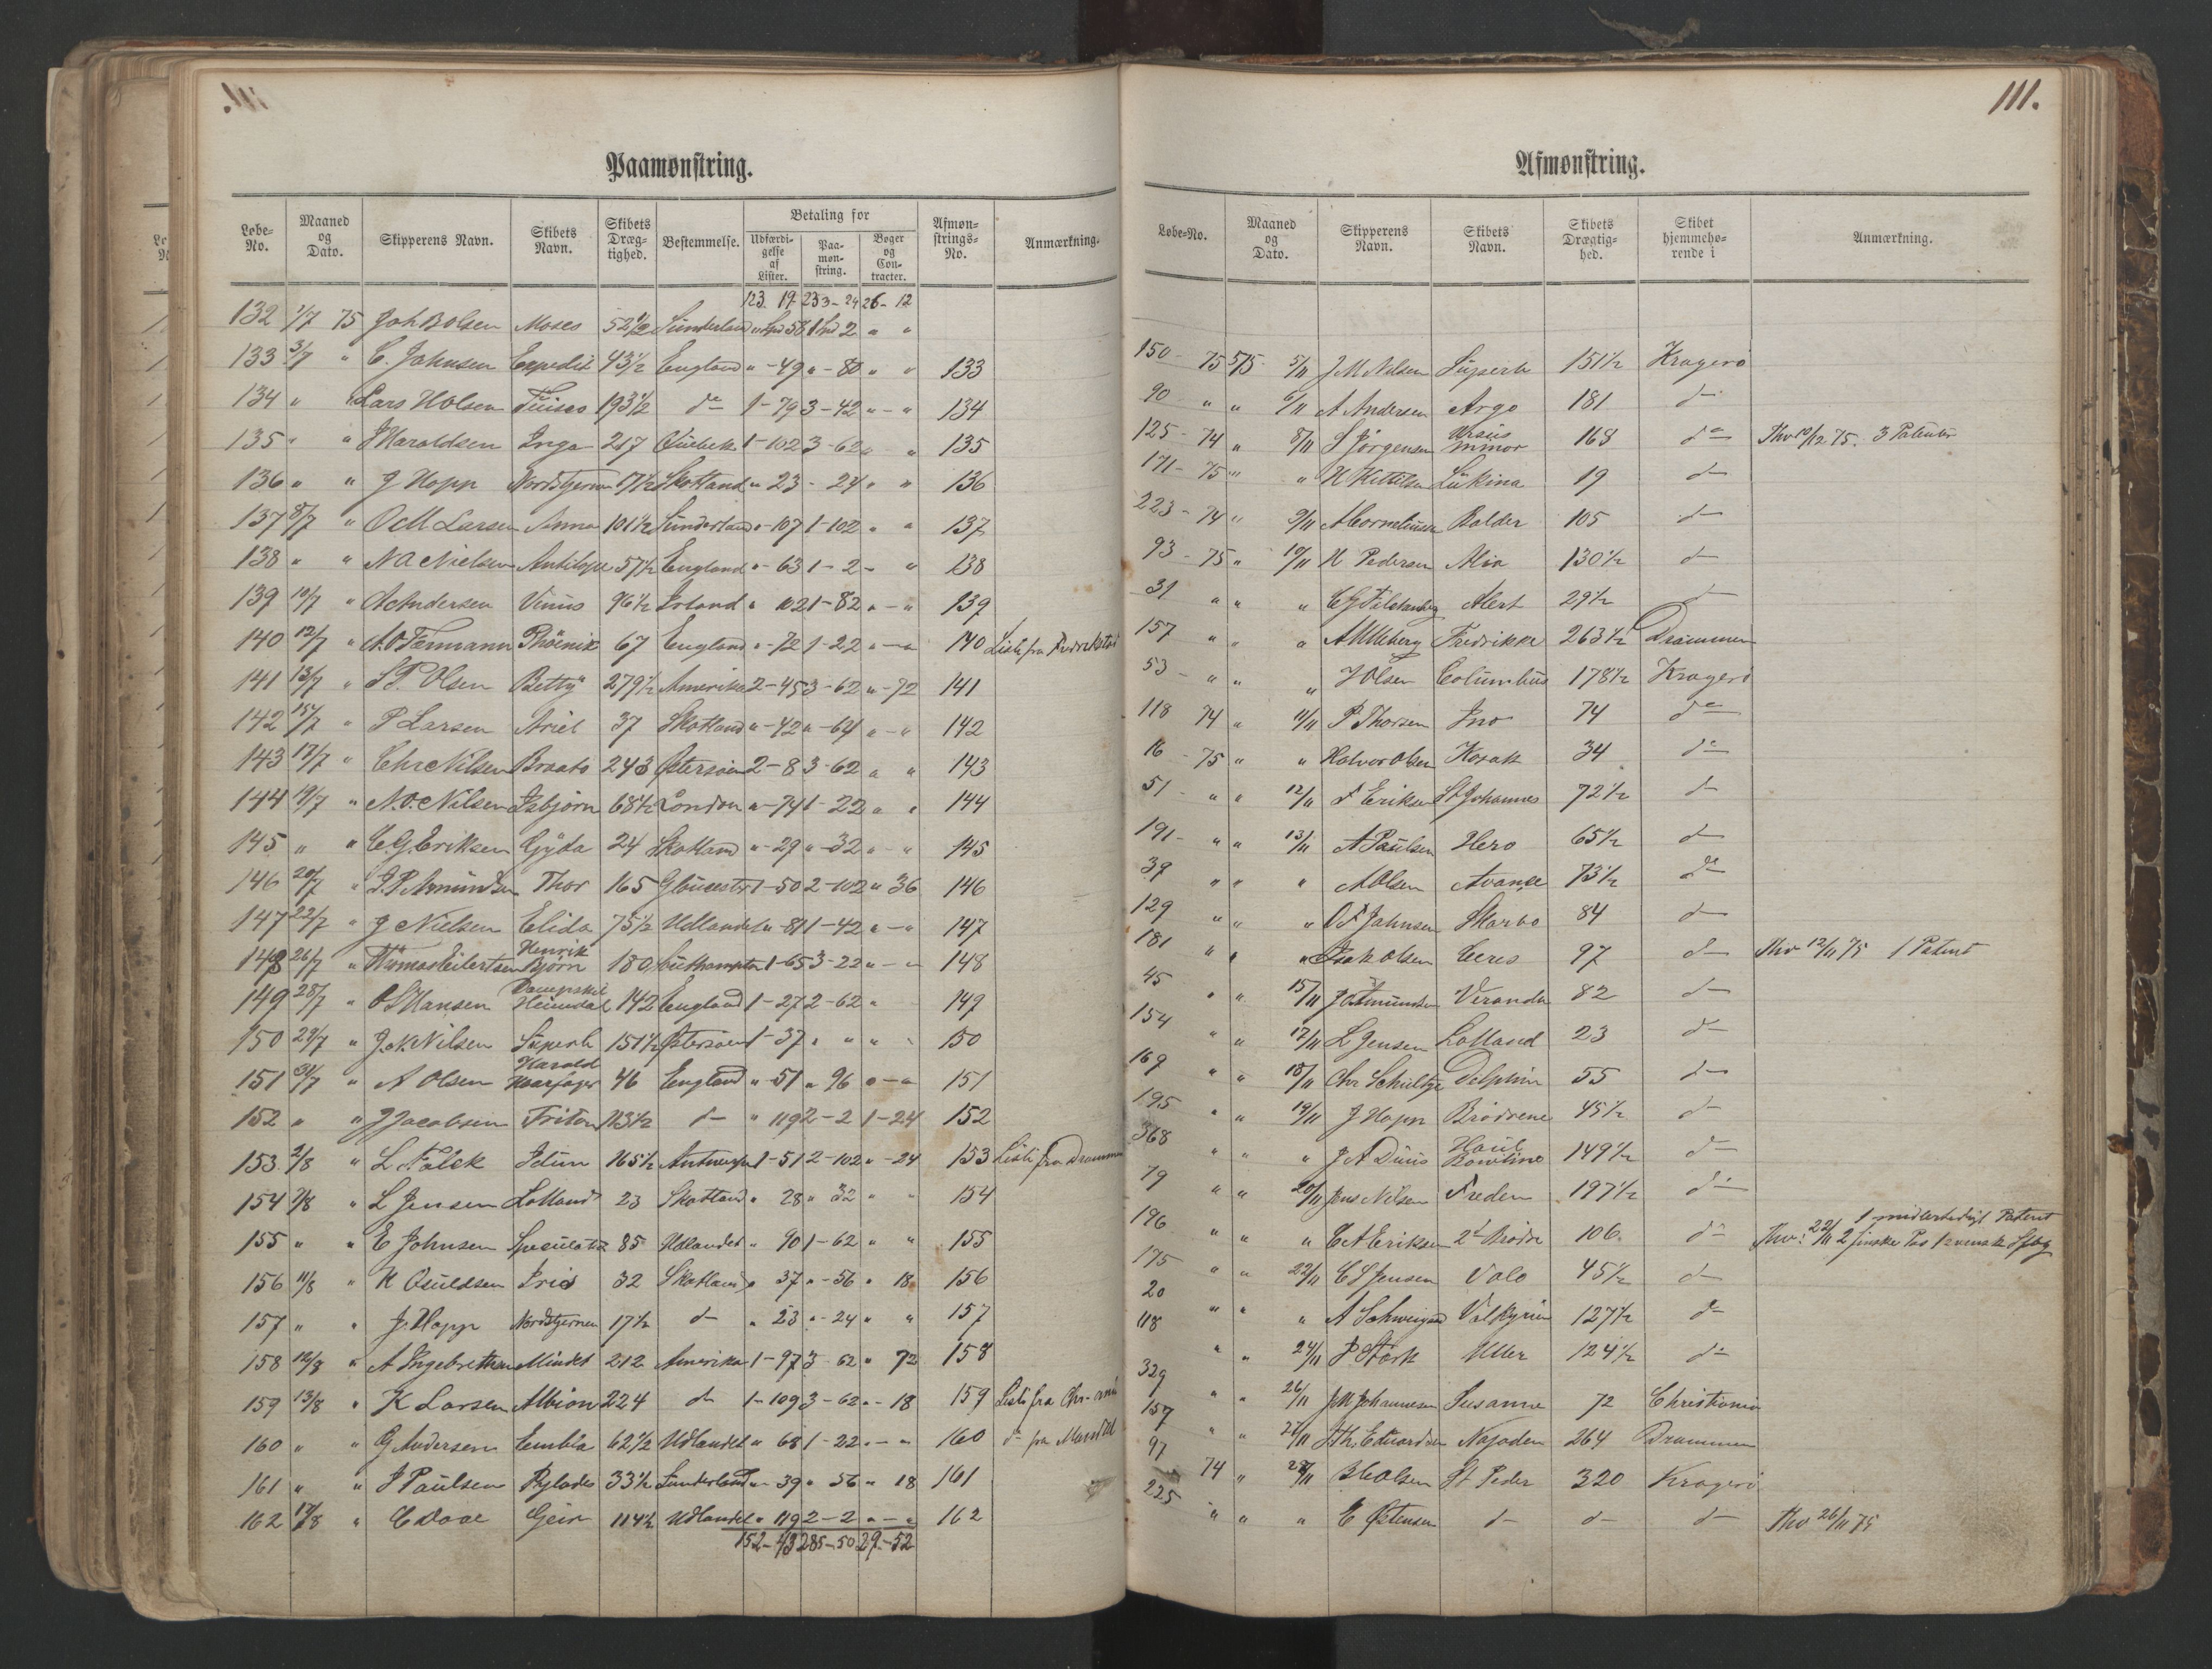 Paamønstring.
Løbe-No. Maaned og Dato. Skipperens Navn. Skibets Navn. Skibets Dræg-tighed. Bestemmelse. Betaling for Udfærdi-gelse af Lister. Paa-møn-string. Bøger og Con-tracter. Afmøn-strings-No. Anmærkning.
123 19 233-24 26-12
132 1/7 75 Joh B Olsen Moses 52 1/2 Sunderland
133 3/7 " C. Johnsen Expedit 43 1/2 England "-49 "-80 " " 133
134 " Lars H Olsen Tuisco 193 1/2 do 1-79 3-42 "-" 134
135 " " J Haraldsen Inga 217 Quebek 1-102 3-62 " " 135
136 " " J Hopp Nordstjernen 17 1/2 Skotland " 23 - 24 " " 136
137 8/7 " O M Larsen Anna 101 1/2 Sunderland "-107 1-102 " " 137
138 " " N A Nielsen Antilope 57 1/2 England "-63 1-2 - " 138
139 10/7 " A Andersen Venus 96 1/2 Irland " 102 1-82 "-" 139
140 12/7 " A.O Termann Phönix 67 England "-72 1-22 "-" 140 Liste fra Fredrikstad
141 13/7 " S P. Olsen Betty 279 1/2 Amerika 2-45 3-62 "-72 141
142 15/7 " P Larsen Ariel 37 Skotland "-42 "-64 "-" 142
143 17/7 " Chr Nilsen Braato 243 Østersøen 2-8 3-62 " " 143
144 19/7 " N.O. Nilsen Isbjørn 68 1/2 London "-74 1-22 " " 144
145 " " C.G. Eriksen Gyda 24 Skotland "-29 "-32 "-" 145
146 20/7 " J.P. Amundsen Thor 165 Gloucester 1-50 2-102 " 36 146
147 22/7 " J Nielsen Elida 75 1/2 Udlandet "-81 1-42 "-" 147
148 26/7 " Thomas Eilertsen Henrik Bjørn 180 Southampton 1-65 3-22 "-" 148
149 28/7 " O S Hansen Dampskib Heimdal 142 England 1-27 2-62 " 149
150 29/7 " J. M. Nilsen Superb 151 1/2 Østersøen 1-37 " " " " 150
151 30/7 " A Olsen Harald Haarfager 46 England "-51 " 96 "-" 151
152 " " J Jacobsen Triton 113 1/2 do " 119 2-2 1-24 152
153 2/8 " L Falck Idun 165 1/2 Antwerpen 1-51 2-102 "-24 153 Liste fra Drammen
154 7/8 " L Jensen Lolland 23 Skotland " 28 " 32 " " 154
155 " " E Johnsen Speculator 85 Udlandet " 90 1-62 " " 155
156 11/8 " K Osuldsen Iris 32 Skotland " 37 "-56 " 18 156
157 " " J. Hopp Nordstjernen 17 1/2 do " 23 "-24 " " 157
158 12/8 " A Ingebrethsen Mindet 212 Amerika 1-97 3 62 " 72 158
159 13/8 " K Larsen Albion 224 do 1-109 3-62 "-18 159 Liste fra Chr-ania
160 " " G Andersen Embla 62 1/2 Udlandet " 68 1-22 "-" 160 do fra Mandal
161 " " J Paulsen Pylades 33 1/2 Sunderland "-39 " 56 " 18 161
162 17/8 " C Daae Geir 114 1/2 Udlandet " 119 2-2 "-" 162
152-43 285-50 29-52
111.
Afmønstring.
Løbe-No. Maaned og Dato. Skipperens Navn. Skibets Navn. Skibets Drægtig-hed. Skibet hjemmehø-rende i Anmærkning.
150- 75 75 5/11 J M Nilsen Superb 151 1/2 Kragerø
90 " " 6/11 A Andersen Argo 181 do
125- 74 " 8/11 S Jørgensen Ursus minor 168 do Thv 10/12 75. 3 Patenter
171- 75 " " H Kittilsen Lükina 19 do
223- 74 " 9/11 A Corneliusen Balder 105 do
93- 75 " 10/11 H Pedersen Alia 130 1/2 do
31 " " " Alert 29 1/2 do
157 " " " A Ulleberg Fredrikke 263 1/2 Drammen
53- " " " J Olsen Columbus 178 1/2 Kragerø
118 74 " 11/11 P Thorsen Ino 74 do
16- 75 " " Halvor Olsen Kosak 34 do
51- " " 12/11 F Eriksen St Johannes 72 1/2 do
191- " " 13/11 A Paulsen Hero 65 1/2 do
39 " " " A Olsen Avance 73 1/2 do
129 " " " O F Jahnsen Skarbo 84 do
181 " " " Isak Olsen Ceres 97 do Thv 12/11 75 1 Patent
45 " " 15/11 J Amundsen Veranda 82 do
154 " " 17/11 L Jensen Lolland 23 do
169 " " 18/11 Chr Schultze Delphin 55 do
195 " " 19/11 J Hopp Brødrene 45 1/2 do
368 " " " J A Duus Haul Bowline 149 1/2 do
79 " " 20/11 Jens Nilsen Freden 197 1/2 do
196 " " " C A Eriksen 2d Brødre 106 do Thv: 22/11 1 midlertidigt Patent 2 finske Pas
175 " " 22/11 C S Jensen Valo 45 1/2 do
20 " " " A Schweigaard Valkyrien 127 1/2 do
118 " " 24/11 P Stärk Uller 124 1/2 do
329 " " 26/11 J M Johannesen Susanne 72 Christiania
157 " " 27/11 J Th. Edvardsen Najaden 264 Drammen
97 74 " 28/11 Olsen St Peder 320 Kragerø
225 " " " E Østensen do do do Thv 26/11 75